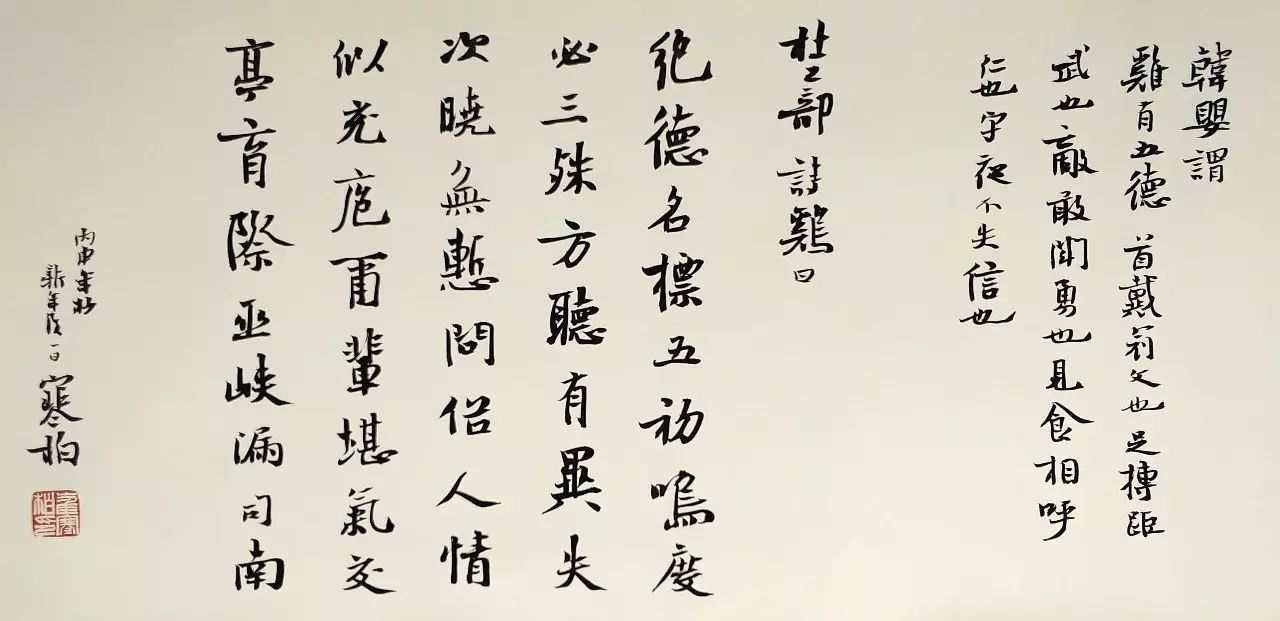 韓嬰謂
雞有五德 首戴冠文也足搏距
武也敵敢鬥勇也見食相呼
仁也守夜不失信也
杜工部詩鷄曰
紀德名標五初鳴度
必三殊方聽有異失
次曉無慙問俗人情
似充庖爾輩堪氣交
亭育際巫峽漏司南
丙申年於
新年後一日 寒柏